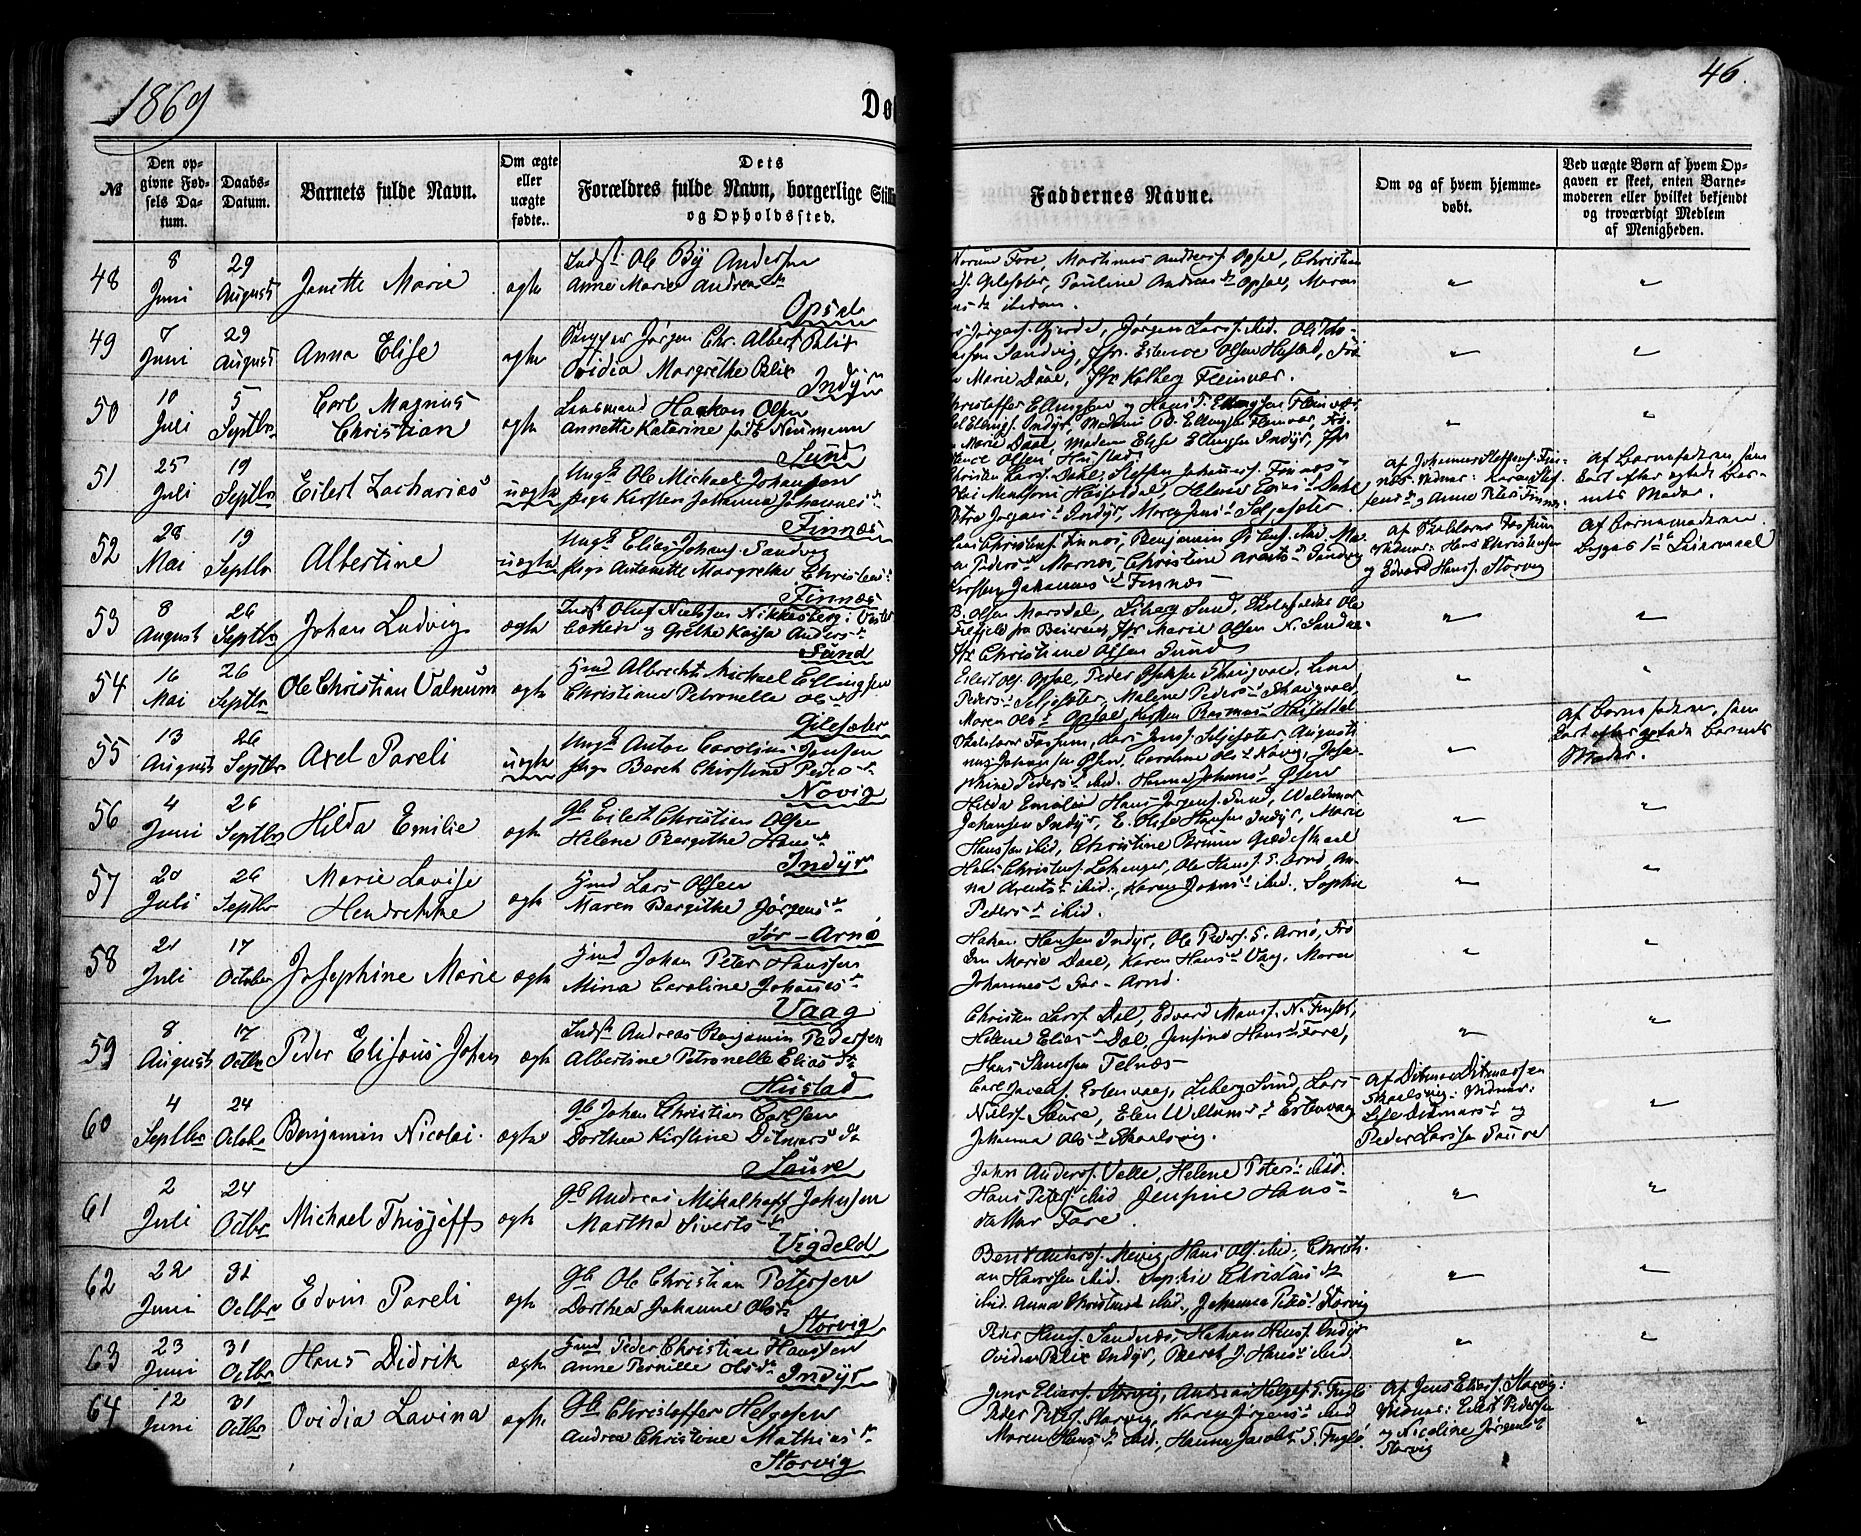 1869
Dø
46.
№
Den opgivne Fødsels Datum.
Daabs-Datum.
Barnets fulde Navn.
Om ægte eller uægte fødte.
Dets Forældres fulde Navn, borgerlige Stilli og Opholdssted.
Faddernes Navne.
Om og af hvem hjemmedøbt.
Ved uægte Børn af hvem Opgaven er skeet, enten Barnemoderen eller hvilket bekjendt og troværdigt Medlem af Menigheden.
48
8 Juni
29 August
Janette Marie
ægte
Indst Ole By Andersen
Anne Marie Andreasdr
Opsal
Fore, Martinus Anders. Opsal, Christian
Pauline Andreasdr Opsal, Maren
ibidem.
49
7 Juni
29 August
Anna Elise
ægte
Jørgen Chr. Albert Blix
Ovidia Margrethe Blix
Indyr
Gjerde, Jørgen Larss. ibid.
Sandvig, Olsen Hustad, Frø
Marie Daae, Fr Kolberg Fleinvær.
50
10 Juli
5 Septbr
Carl Magnus
Christian
ægte
Lensmand Haakon Olsen
Annette Katarine født Neumann
Sund
Christoffer Ellingsen og Hans T. Ellingsen Fleinvær
Ellings. Indyr, Madame B. Ellingsen Fleinvær, Frø
Marie Daae, Madam Elise Ellingsen Indyr, Fr
Olsen, Hustad
51
25 Juli
19 Septbr
Eilert Zacharias
uægte
Ungk Ole Michael Johansen
Pige Kirsten Johanna Johannesdr
Finnæs
Christen Larss. Dahl, Steffen Johanness. Finnæs
Hæsfeldal, Helene Eliasdr Dahl
Petra Jørgensdr Indyr, Maren Jensdr Seljesæter
af Johannes Steffens. Finnæs. Vidner: Karen Steffensdr og Anne Petersdr Finnæs.
af Barnefaderen, som Enkl. efter ægtede Barnets Moder.
52
28 Mai
19 Septbr
Albertine
uægte
Ungk Elias Johans. Sandvig
Pige Antonette Margrethe Christensdr
Finnæs
Lars Christens. Finnæs, Benjamin
Pedersdr Mornæs, Christine Arentsdr Sandvig
Kirsten Johannesdr Finnæs
af Skolelærer Fossum
Vidner: Hans Christensen
og Edvard Hanss. Storvig
af Barnemoderen.
Begges 1ste Leiermaal
53
8 August
26 Septbr
Johan Ludvig
ægte
Indst Oluf Nielsen Nikkeberg i Vester
og Grethe Kajsa Andersdr
Sund
B. Olsen Marsdal, Liberg Sund, Skoleholder Ole
fra Beieren, Fr Marie Olsen N. Sandnæs
Fr Christine Olsen Sund
54
16 Mai
26 Septbr
Ole Christian Valnum
ægte
Gmd Albrecht Michael Ellingsen
Christiane Petronelle Olsdr
Gilesæter
Eilert Ols. Opsal, Peder Skaugvold, Lina
Pedersdr Seljesæter, Malene Pedersdr Skaugvold,
Maren Olsdr Opsal, Kirsten Rasmusdr Hæsfeldal
55
13 August
26 Septbr
Axel Pareli
uægte
Ungk Anton Carolius Jensen
Pige Beret Chirstine Pedersdr
Novig
Skolelærer Fossum, Lars Jens. Seljesæter, Augusti
nus Johansen Øsen, Caroline Olsdr Novig, Jose
phine Pedersdr ibid. Hanna Johansdr Øsen
af Barnefaderen, som Enkl. efter ægtede Barnets Moder.
56
4 Juni
26 Septbr
Hilda Emilie
ægte
Gb Eilert Christian Olsen
Helene Bergithe Hansdr
Indyr
Hilda Emilie Hans Jørgens. Sund, Waldemar
Johansen Indyr, E. Elise Hansen Indyr, Marie
Hansen ibid, Christine Brinn Gjedeskaal
57
20 Juli
26 Septbr
Marie Lavise
Hendrikke
ægte
Gmd Lars Olsen
Maren Bergithe Jørgensdr
Sør-Arnø
Hans Christens. Lekanger, Ole Hanss. S. Arnø, An
na Arentsdr ibid., Karen Johnsdr ibid., Sophie
Pedersdr ibid.
58
21 Juli
17 October
Josephine Marie
ægte
Gmd Johan Peter Hanssen
Mina Caroline Johannesdr
Vaag
Hakon Hansen Indyr, Ole Peders. S. Arnø, Frø
ken Marie Daae, Karen Hansdr Vaag, Maren
Johannesdr Sør-Arnø.
59
8 August
17 Octbr
Peder Elisæus Johan
ægte
Indst Andreas Benjamin Pedersen
Albertine Petronelle Eliasdr
Hustad
Christen Larss. Dal, Edvard Hanss. N. Fugle,
Helene Eliasdr Dal, Jensine Hansdr Fore,
Hans Telnæs
60
4 Septbr
24 Octobr
Benjamin Nicolai.
ægte
Gb Johan Christian Carlsen
Dorthea Kirstine Ditmarsdr
Saure
Carl Estenvaag, Liberg Sund, Lars
Niels. Saure, Elen Willumsdr Estenvaag
Johanna Olsdr Skaalsvig.
af Ditmar Ditmarsen
Skaalsvig: Vidner:
Ditmarsdr og
Peder Larssen Saure
61
2 Juli
24 Octbr
Michael Thisjeff
ægte
Gb Andreas Mikalhoff Johnsen
Martha Sivertsdr
Vigdeld
John Anders. Velle, Helene Petersdr ibid.
Hans Peters. ibid Jensine Hans-
datter Fore.
62
22 Juni
31 Octbr
Edvin Pareli
ægte
Gb Ole Christian Petersen
Dorthea Johanne Olsdr
Storvig
Bent Anders. Mevig, Hans Ols. ibid., Christi-
an Hanssen ibid. Sophie Christensdr
ibid. Anna Christensdr ibid., Johanna Petersdr Storvig
63
23 Juni
31 Octbr
Hans Didrik
ægte
Gmd Peder Christian Hanssen
Anne Pernille Olsdr
Indyr
Peder Hans. Sandnæs, Hakon Hans. Indyr
Ovidia Blix Indyr, Beret J. Hansdr ibid.
64
12 Juni
31 Octbr
Ovidia Lavina
ægte
Gb Christoffer Helgesen
Andrea Christine Mathiasdr
Storvig
Jens Elias. Storvig, Andreas Helges. S. Fuglø
Peder Peters. Storvig, Karen Jørgensdr ibid
Maren Hansdr ibid., Hanna Jacobsdr S. Fuglø.
af Jens Elias. Storvig:
Vidner: Eilert Pedersen
og Nicoline Jørgensdr
Storvig